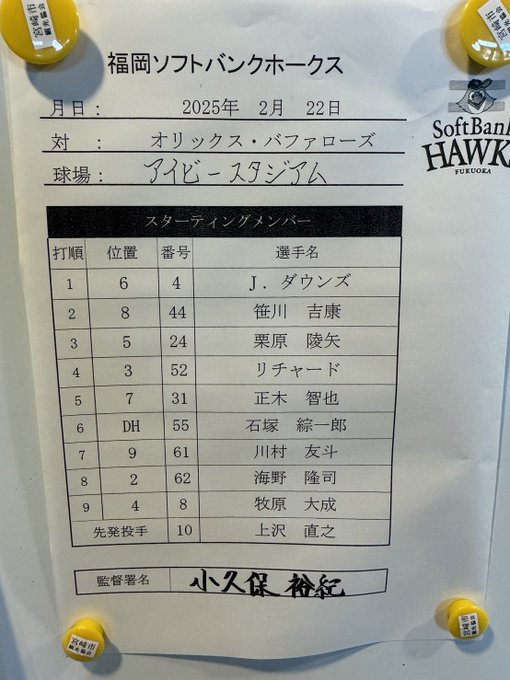 宮崎市
観光協会
宮崎市
福岡ソフトバンクホークス
月日: 2025年 2月 22日
対 : オリックス・バファローズ
球場: アイビースタジアム
SoftBank
HAWK
FUKUOKA
スターティングメンバー
打順 位置 番号 選手名
1 6 4 J. ダウンズ
2 8 44 笹川 吉康
3 5 24 栗原 陵矢
4 3 52 リチャード
5 7 31 正木 智也
6 DH 55 石塚 綜一郎
7 9 61 川村 友斗
8 2 62 海野 隆司
9 4 8 牧原 大成
先発投手 10 上沢 直之
監督署名 小久保 裕紀
宮崎市
観光協会
宮崎市